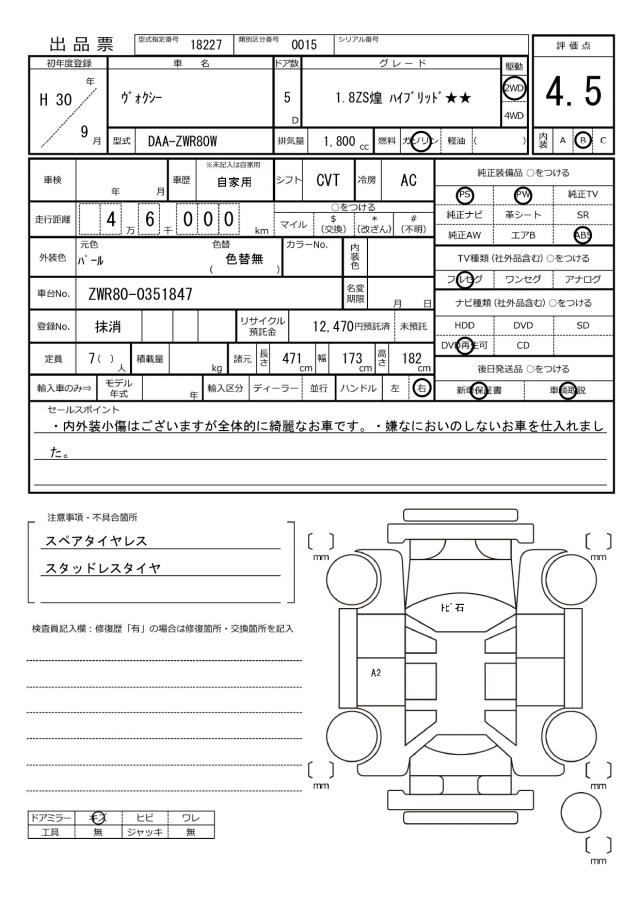 出品票 型式指定番号 18227 類別区分番号 0015 シリアル番号
評価点
4.5
初年度登録 車名 ドア数 グレード 駆動
H 30 年 9 月 ヴォクシー 5 D 1.8ZS煌 ハイブリッド★★ 2WD 4WD
型式 DAA-ZWR80W 排気量 1,800 cc 燃料 ガソリン 軽油 ( ) 内装 A B C
車検 年 月 車歴 ※未記入は自家用 自家用 シフト CVT 冷房 AC
走行距離 4 6 000 万 千 km
○をつける
マイル $ (交換) * (改ざん) # (不明)
外装色 元色 パール 色替 ( 色替無 ) カラーNo. 内装色
車台No. ZWR80-0351847 名変期限 月 日
登録No. 抹消 リサイクル預託金 12,470円預託済 未預託
定員 7 ( ) 人 積載量 kg 諸元 長さ 471 cm 幅 173 cm 高さ 182 cm
輸入車のみ⇒ モデル年式 年 輸入区分 ディーラー 並行 ハンドル 左 右
純正装備品 ○をつける
PS PW 純正TV
純正ナビ 革シート SR
純正AW エアB ABS
TV種類 (社外品含む) ○をつける
フルセグ ワンセグ アナログ
ナビ種類 (社外品含む) ○をつける
HDD DVD SD
DVD再生可 CD
後日発送品 ○をつける
新車保証書 車輌取説
セールスポイント
・内外装小傷はございますが全体的に綺麗なお車です。・嫌なにおいのしないお車を仕入れまし
た。
注意事項・不具合箇所
スペアタイヤレス
スタッドレスタイヤ
検査員記入欄：修復歴「有」の場合は修復箇所・交換箇所を記入
〔 〕 mm
〔 〕 mm
トビ石
A2
〔 〕 mm
〔 〕 mm
〔 〕 mm
ドアミラー キズ ヒビ ワレ
工具 無 ジャッキ 無